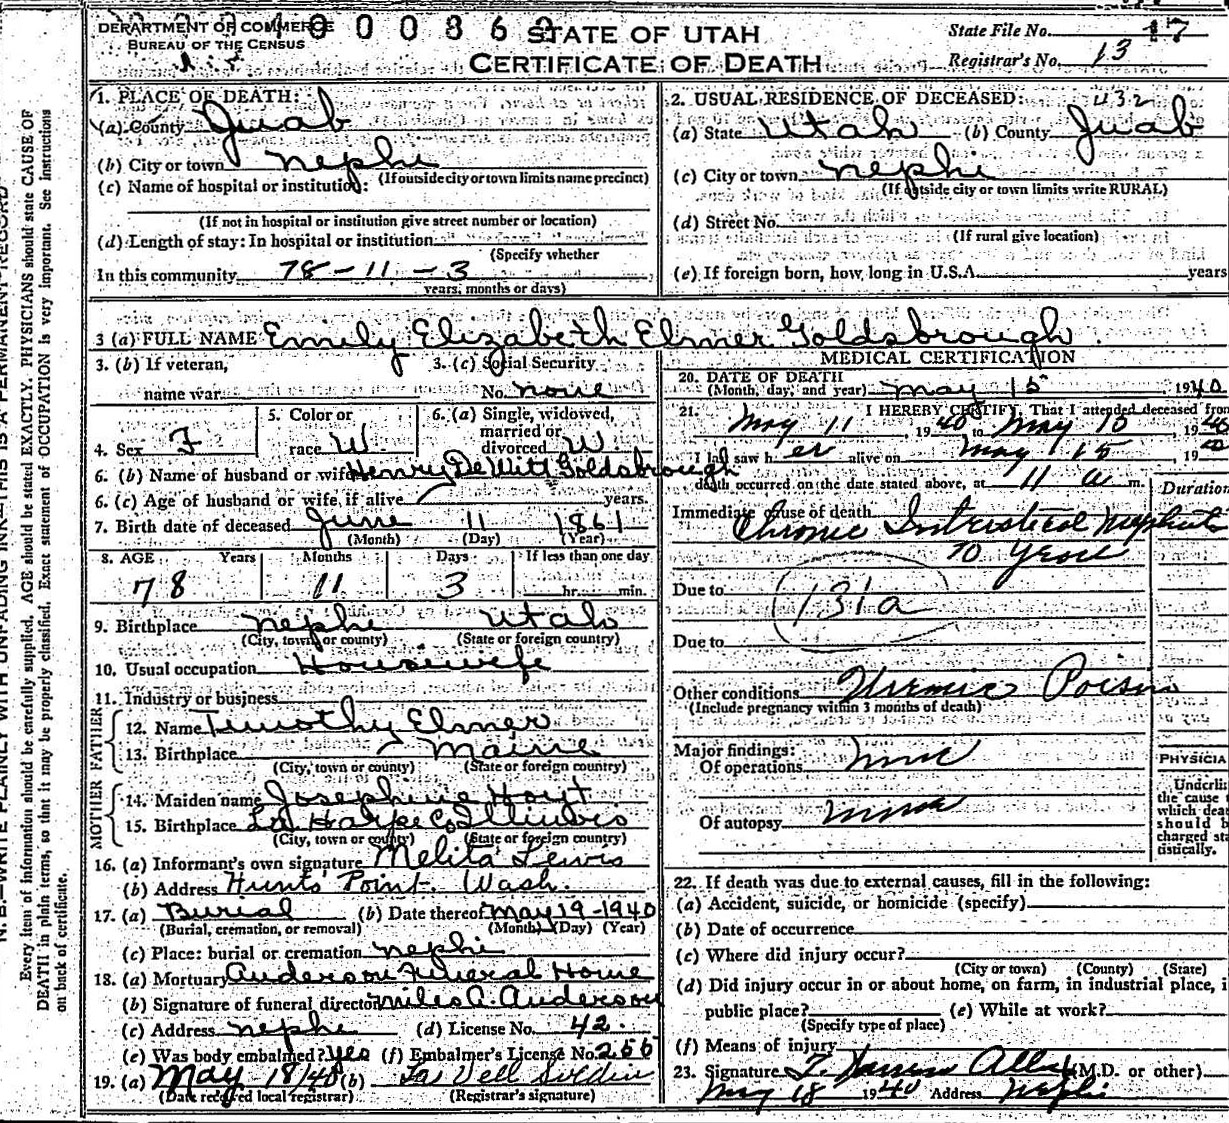 DEPARTMENT OF COMMERCE
BUREAU OF THE CENSUS
4 0 0 0 8 6
STATE OF UTAH
CERTIFICATE OF DEATH
State File No. 17
Registrar's No. 13
N. B.—WRITE PLAINLY WITH UNFADING INK—THIS IS A PERMANENT RECORD
Every item of information should be carefully supplied. AGE should be stated EXACTLY. PHYSICIANS should state CAUSE OF
DEATH in plain terms, so that it may be properly classified. Exact statement of OCCUPATION is very important. See Instructions
on back of certificate.
1. PLACE OF DEATH:
(a) County Juab
(b) City or town Nephi
(If outside city or town limits name precinct)
(c) Name of hospital or institution:
(If not in hospital or institution give street number or location)
(d) Length of stay: In hospital or institution
(Specify whether
In this community 78-11-3
years, months or days)
2. USUAL RESIDENCE OF DECEASED: 432
(a) State Utah (b) County Juab
(c) City or town Nephi
(If outside city or town limits write RURAL)
(d) Street No.
(If rural give location)
(e) If foreign born, how long in U.S.A. years
3 (a) FULL NAME Emily Elizabeth Elmer Goldsbrough
3. (b) If veteran, 3. (c) Social Security
name war No. none
4. Sex F
5. Color or
race W
6. (a) Single, widowed,
married or
divorced W
6. (b) Name of husband or wife Henry DeWitt Goldsbrough
6. (c) Age of husband or wife, if alive years.
7. Birth date of deceased June 11 1861
(Month) (Day) (Year)
8. AGE Years Months Days If less than one day
78 11 3 hr. min.
9. Birthplace Nephi Utah
(City, town or county) (State or foreign country)
10. Usual occupation Housewife
11. Industry or business
FATHER
12. Name Timothy Elmer
13. Birthplace Maine
(City, town or county) (State or foreign country)
MOTHER
14. Maiden name Josephine Hoyt
15. Birthplace La Harpe Co Illinois
(City, town or county) (State or foreign country)
16. (a) Informant's own signature Melita Lewis
(b) Address Hunts Point. Wash.
17. (a) Burial (b) Date thereof May 19-1940
(Burial, cremation, or removal) (Month) (Day) (Year)
(c) Place: burial or cremation Nephi
18. (a) Mortuary Anderson Funeral Home
(b) Signature of funeral director Miles A. Anderson
(c) Address Nephi (d) License No. 42.
(e) Was body embalmed? Yes (f) Embalmer's License No. 256
19. (a) May 18/40 (b) La Vell
(Date received local registrar) (Registrar's signature)
MEDICAL CERTIFICATION
20. DATE OF DEATH
(Month, day, and year) May 15 1940
21. I HEREBY CERTIFY, That I attended deceased from
May 11, 1940 to May 15 1940
I last saw her alive on May 15 1940
death occurred on the date stated above, at 11 a m.
Duration
Immediate cause of death
Chronic Interstitial Nephritis
10 years
Due to 131a
Due to
Other conditions Uremic Poison
(Include pregnancy within 3 months of death)
Major findings:
Of operations none
Of autopsy none
PHYSICIA
Underlin
the cause
which dea
should b
charged sta
tistically.
22. If death was due to external causes, fill in the following:
(a) Accident, suicide, or homicide (specify)
(b) Date of occurrence
(c) Where did injury occur?
(City or town) (County) (State)
(d) Did injury occur in or about home, on farm, in industrial place, i
public place? (e) While at work?
(Specify type of place)
(f) Means of injury
23. Signature (M.D. or other)
May 18 1940 Address Nephi